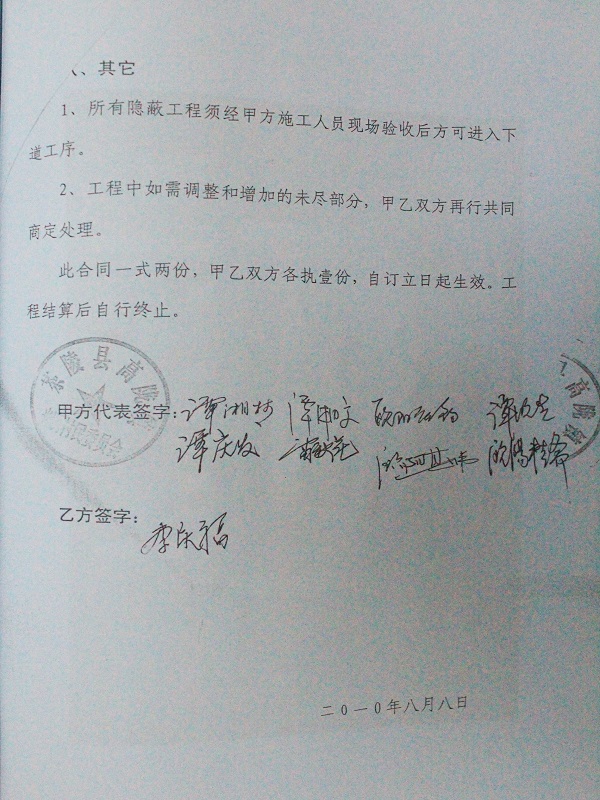 、其它
1、所有隐蔽工程须经甲方施工人员现场验收后方可进入下
道工序。
2、工程中如需调整和增加的未尽部分，甲乙双方再行共同
商定处理。
此合同一式两份，甲乙双方各执壹份，自订立日起生效。工
程结算后自行终止。
茶陵县高陇
村民委员会
高陇镇
甲方代表签字：谭湘村
谭庆发
乙方签字：
李庆福
二0一0年八月八日